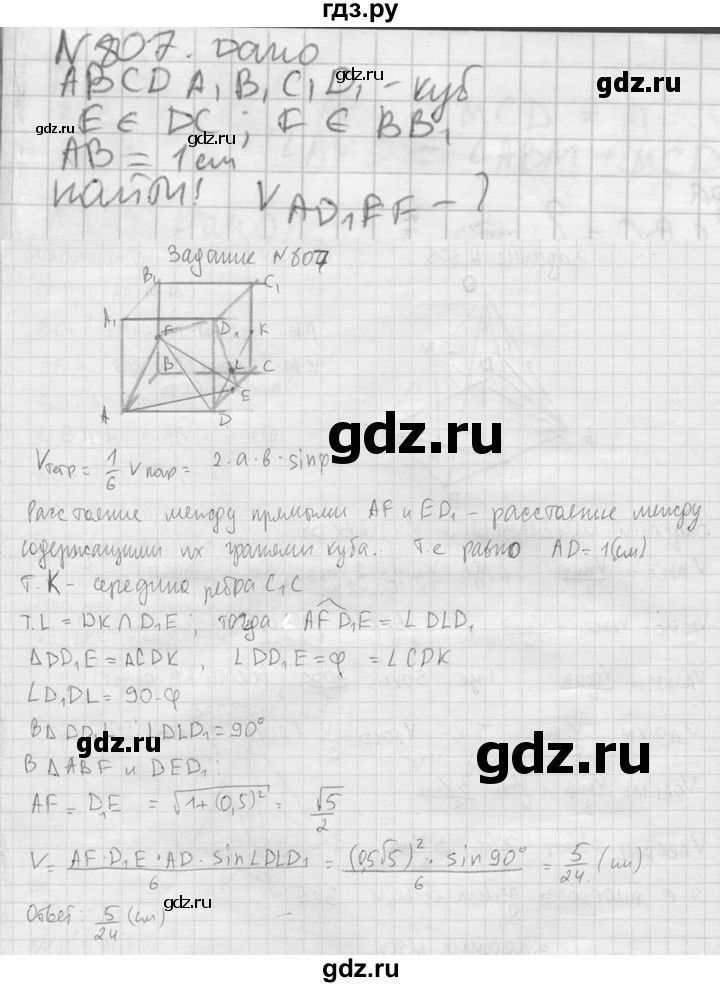 гдз.ру
N 807. Дано
ABCD A₁ B₁ C₁ D₁ - куб
gdz.ru
gdz.ru
E ∈ DC; F ∈ BB₁
gdz.ru
AB = 1 см
найти! V AD₁EF - ?
Задание N 807
B₁ C₁
A₁ D₁
F K
B L C
E
A D
gdz.ru
gdz.ru
Vтетр = 1/6 Vпар = 2·a·b·sinφ
Расстояние между прямыми AF и ED₁ - расстояние между
содержащими их гранями куба. Т.е равно AD = 1(см)
т. K - середина ребра C₁C
т. L = DK ∩ D₁E; тогда AF D₁E = ∠DLD₁
△DD₁E = △CDK, ∠DD₁E = φ = ∠CDK
∠D₁DL = 90-φ
В△ ∠DLD₁ = 90°
gdz.ru
gdz.ru
В △ABF и DED₁:
AF = D₁E = √1+(0,5)² = √5/2
V = AF·D₁E·AD·sin∠DLD₁/6 = (0,5√5)²·sin90°/6 = 5/24 (см)
Ответ: 5/24 (см)
gdz.ru
gdz.ru
gdz.ru